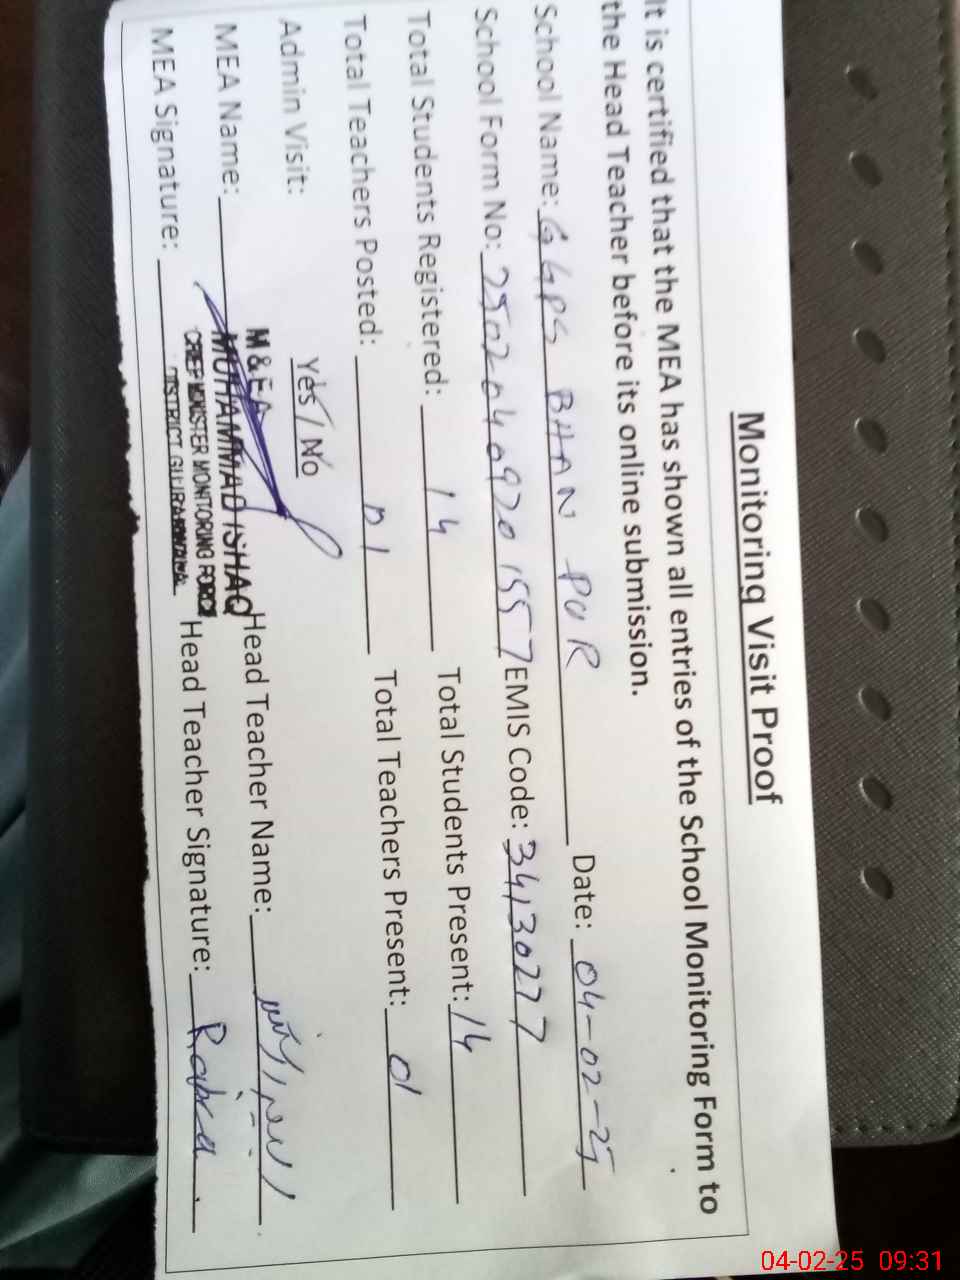 Monitoring Visit Proof
It is certified that the MEA has shown all entries of the School Monitoring Form to
the Head Teacher before its online submission.
School Name: GGPS BHAN PUR Date: 04-02-25
School Form No: 25020409201557 EMIS Code: 34130277
Total Students Registered: 14 Total Students Present: 14
Total Teachers Posted: 01 Total Teachers Present: 01
Admin Visit: Yes / No
M & EA
MEA Name: MUHAMMAD ISHAQ Head Teacher Name:
CHIEF MINISTER MONITORING FORCE
MEA Signature: DISTRICT GUJRANWALA Head Teacher Signature: Rabea
04-02-25 09:31